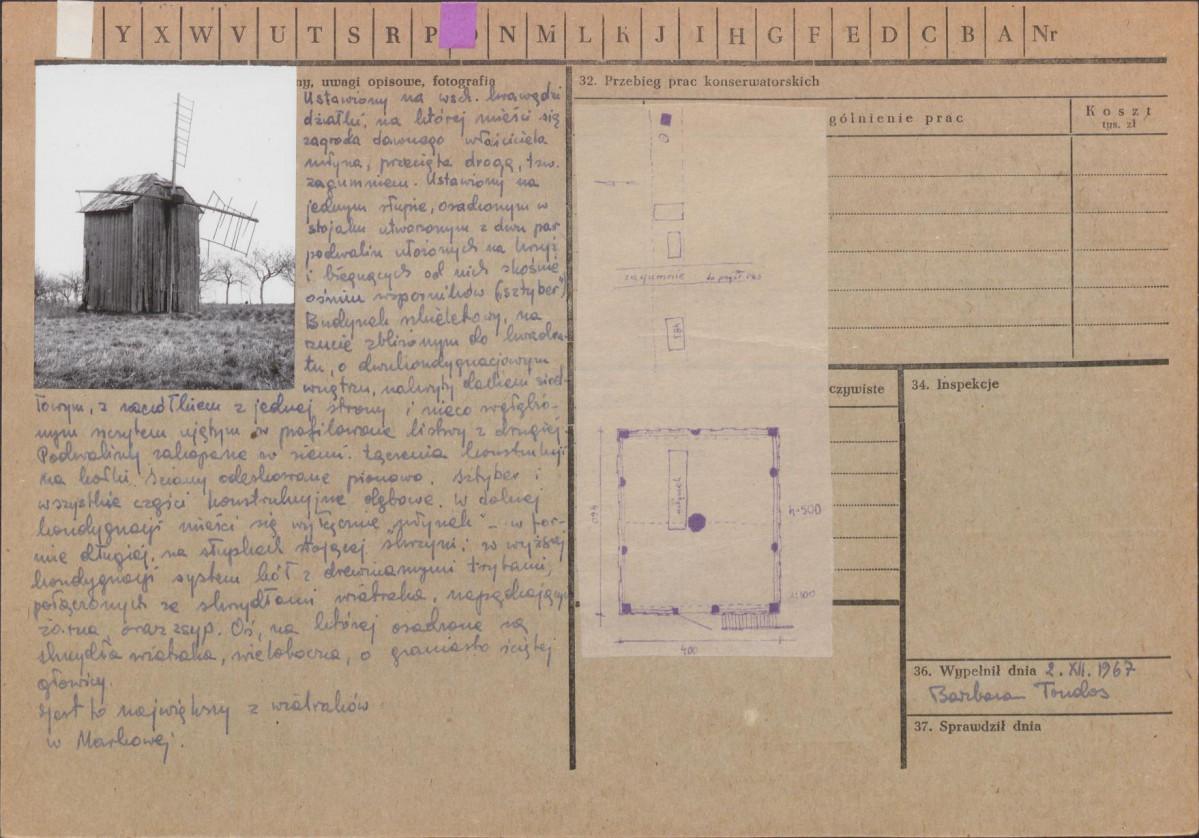 Y X W V U T S R P O N M L K J I H G F E D C B A Nr
ny, uwagi opisowe, fotografia
Ustawiony na wsch. krawędzi
działki, na której mieści się
zagroda dawnego właściciela
młyna, przecięta drogą, tzw.
zagumniem. Ustawiony na
jednym słupie, osadzonym w
stojaku utworzonym z dwu par
podwalin ułożonych na krzyż
i biegnących od nich skośnie
ośmiu wsporników ("sztyber")
Budynek szkieletowy, na
rzucie zbliżonym do kwadra-
tu, o dwukondygnacjowym
wnętrzu, nakryty dachem siod-
łowym, z naczółkiem z jednej strony i nieco
nym szczytem ujętym w profilowane listwy z drugiej.
Podwaliny zakopane w ziemi. Łączenia konstrukcji
na kołki. Ściany odeskowane pionowo. Sztyber i
wszystkie części konstrukcyjne dębowe. W dolnej
kondygnacji mieści się wyłącznie "młynek" - w for-
mie długiej, na słupkach stojącej skrzyni; w wyższej
kondygnacji system kół z drewnianymi trybami,
połączonych ze skrzydłami wiatraka, napędzający
żarna, oraz zsyp. Oś, na której osadzone są
skrzydła wiatraka, wieloboczna, o graniasto ściętej
głowicy.
Jest to największy z wiatraków
w Markowej.
32. Przebieg prac konserwatorskich
gólnienie prac
Koszt
tys. zł
zagumnie
483
młynek
460
h-500
400
czywiste
34. Inspekcje
36. Wypełnił dnia 2. XII. 1967
Barbara Tondos
37. Sprawdził dnia